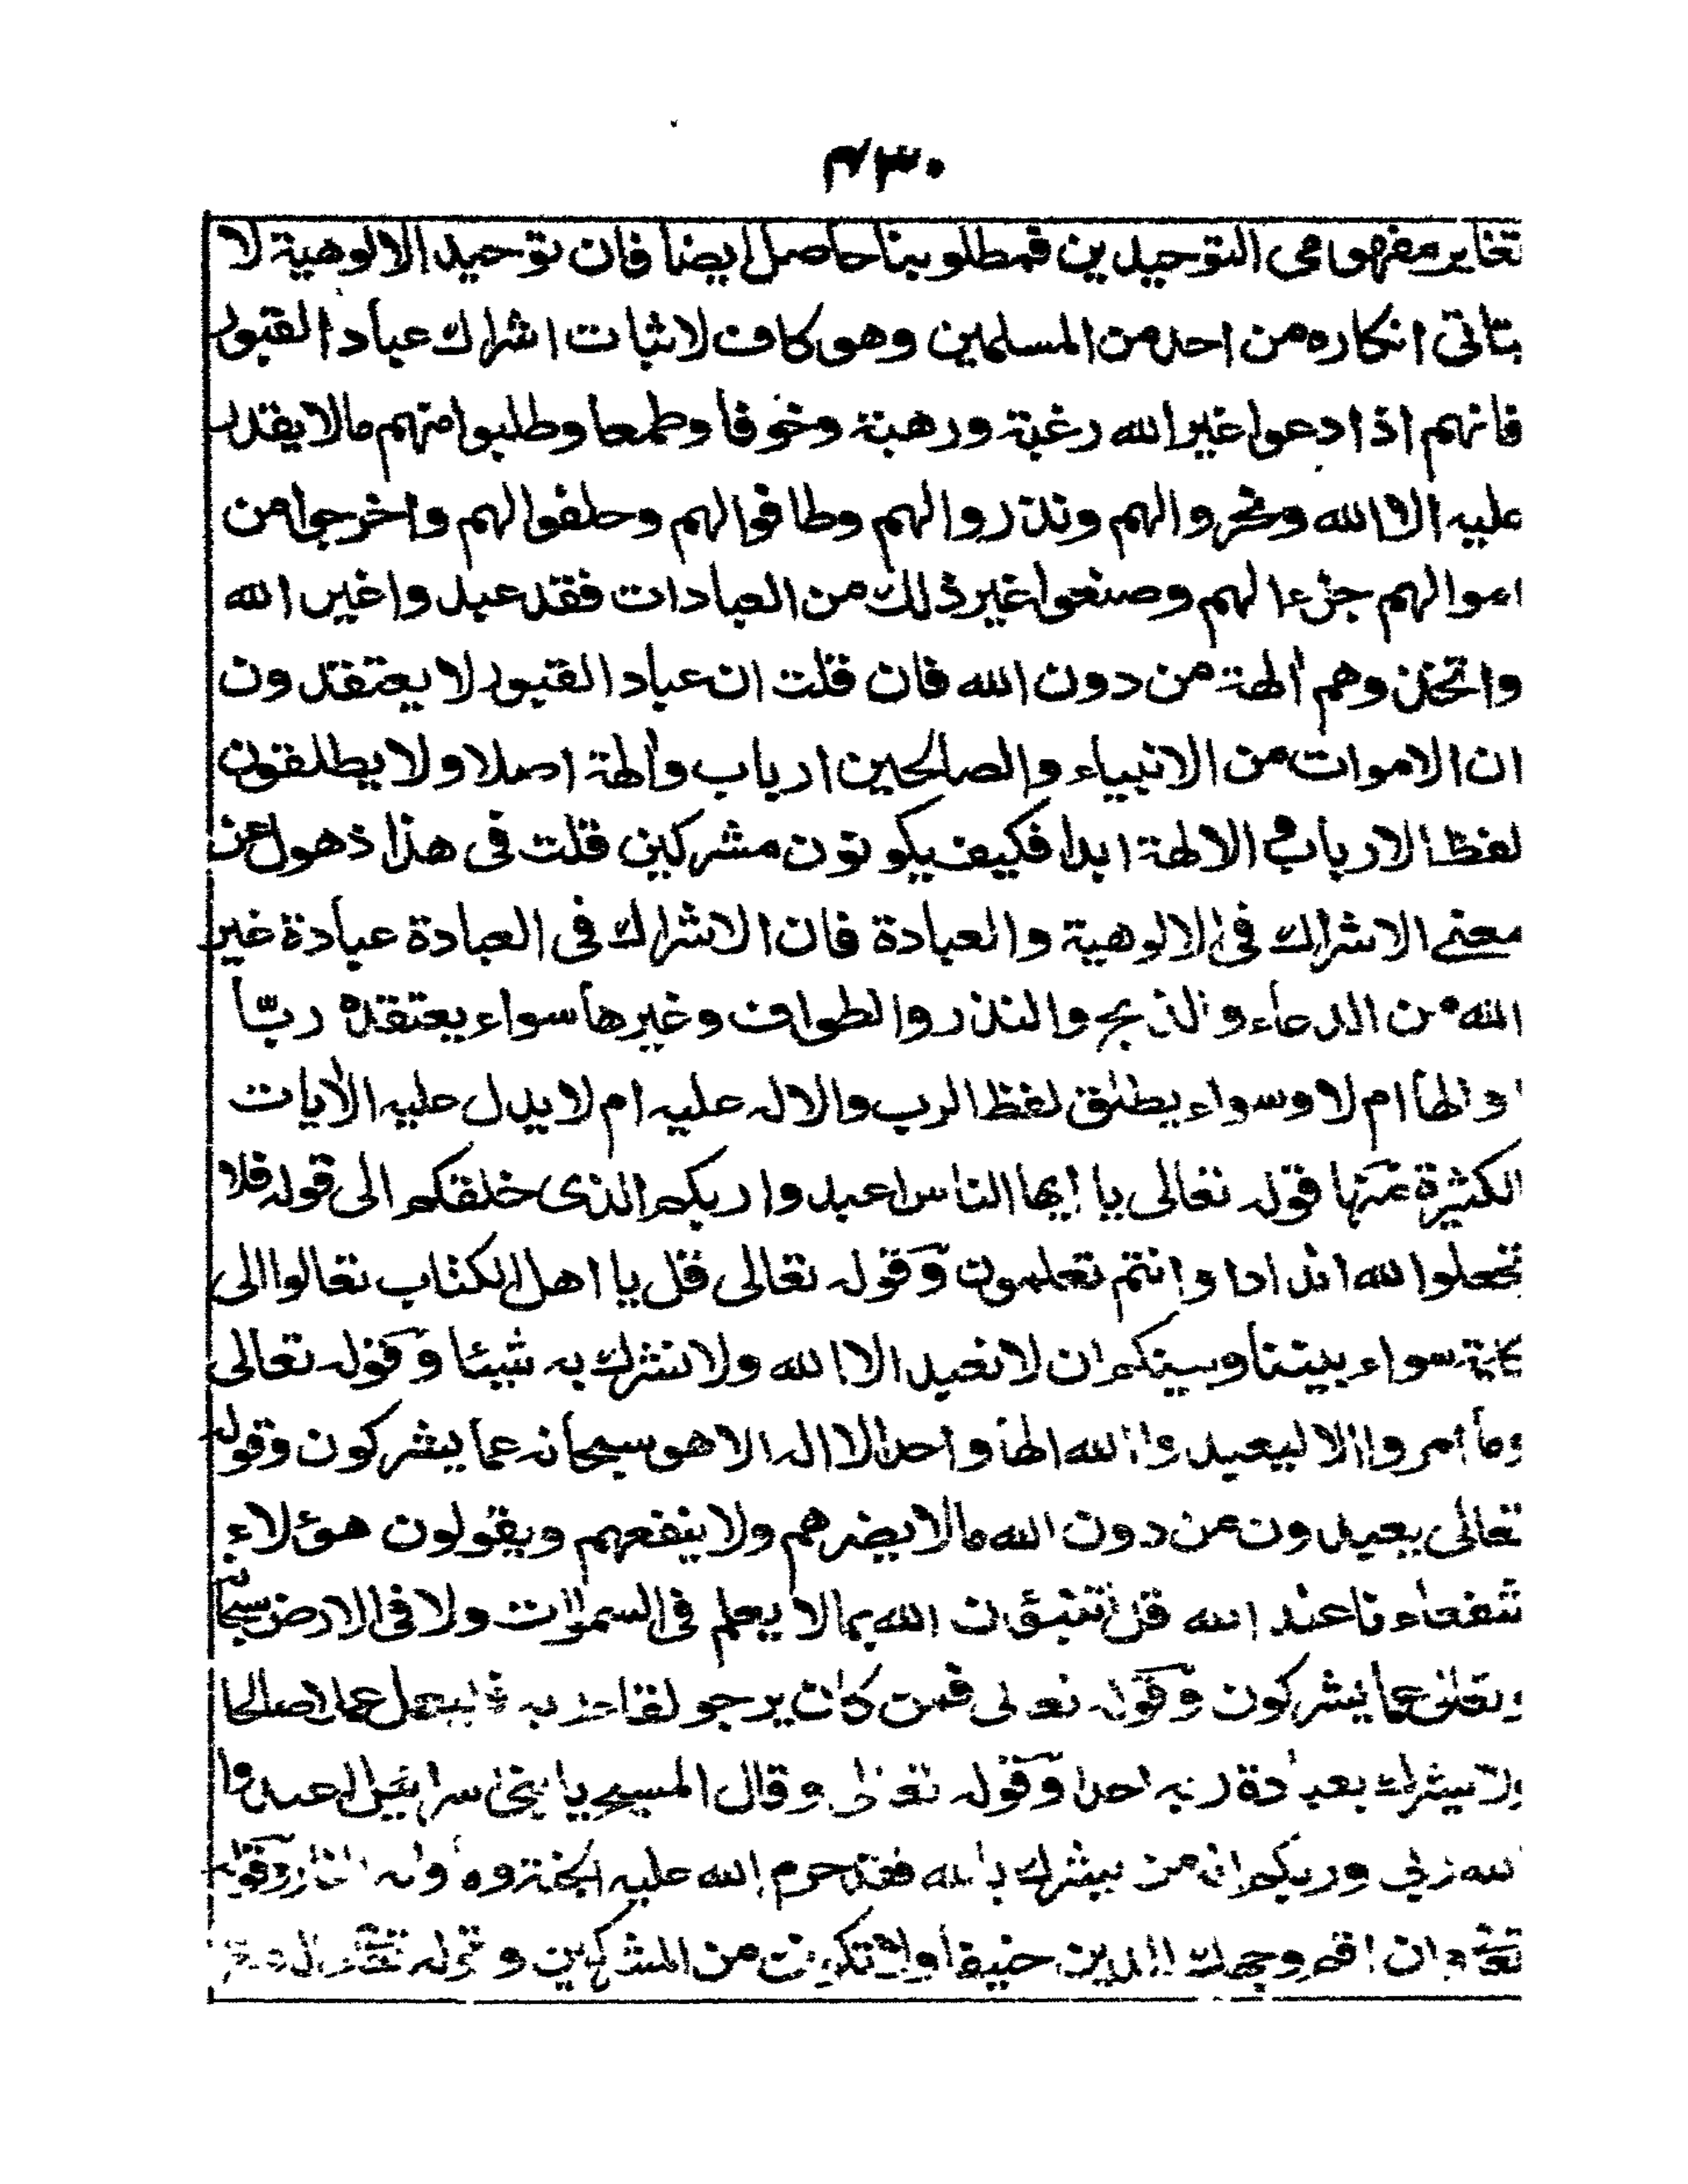 ٤٣٠
تغاير مفهومى التوحيدين فمطلوبنا حاصل ايضا فان توحيد الالوهية لا
يتاتى انكاره من احد من المسلمين وهو كاف لاثبات اشراك عباد القبور
فانهم اذا دعوا غير الله رغبة ورهبة وخوفا وطمعا وطلبوا منهم مالا يقدر
عليه الا الله ونحروا لهم ونذروا لهم وطافوا لهم وحلفوا لهم واخرجوا من
اموالهم جزءا لهم وصنعوا غير ذلك من العبادات فقد عبدوا غير الله
واتخذوهم ألهة من دون الله فان قلت ان عباد القبور لا يعتقدون
ان الاموات من الانبياء والصالحين ارباب وألهة اصلا ولا يطلقون
لفظ الارباب و الالهة ابدا فكيف يكونون مشركين قلت فى هذا ذهول عن
معنى الاشراك فى الالوهية والعبادة فان الاشراك فى العبادة عبادة غير
الله من الدعاء والذبح والنذر والطواف وغيرها سواء يعتقده ربّاً
او الهاً ام لا وسواء يطلق لفظ الرب والاله عليه ام لا يدل عليه الأيات
الكثيرة منها قوله تعالى يا ايها الناس اعبدوا ربكم الذى خلقكم الى قوله فلا
تجعلوا لله اندادا وانتم تعلمون وقوله تعالى قل يا اهل الكتاب تعالوا الى
كلمة سواء بيننا وبينكم ان لا نعبد الا الله ولا نشرك به شيئا وقوله تعالى
وما امروا الا ليعبدوا الله الها واحدا لا اله الا هو سبحانه عما يشركون وقوله
تعالى يعبدون من دون الله مالا يضرهم ولا ينفعهم ويقولون هؤلاء
شفعاءنا عند الله قل أتنبؤن الله بمالا يعلم فى السموات ولا فى الارض سبحانه
وتعالى عما يشركون وقوله تعالى فمن كان يرجو لقاء ربه فليعمل عملا صالحا
ولا يشرك بعبادة ربه احدا وقوله تعالى وقال المسيح يا بنى اسرائيل اعبدوا
الله ربي وربكم انه من يشرك بالله فقد حرم الله عليه الجنة وماواه النار وقوله
تعالى وان اقم وجهك للدين حنيفا ولا تكونن من المشركين وقوله تعالى